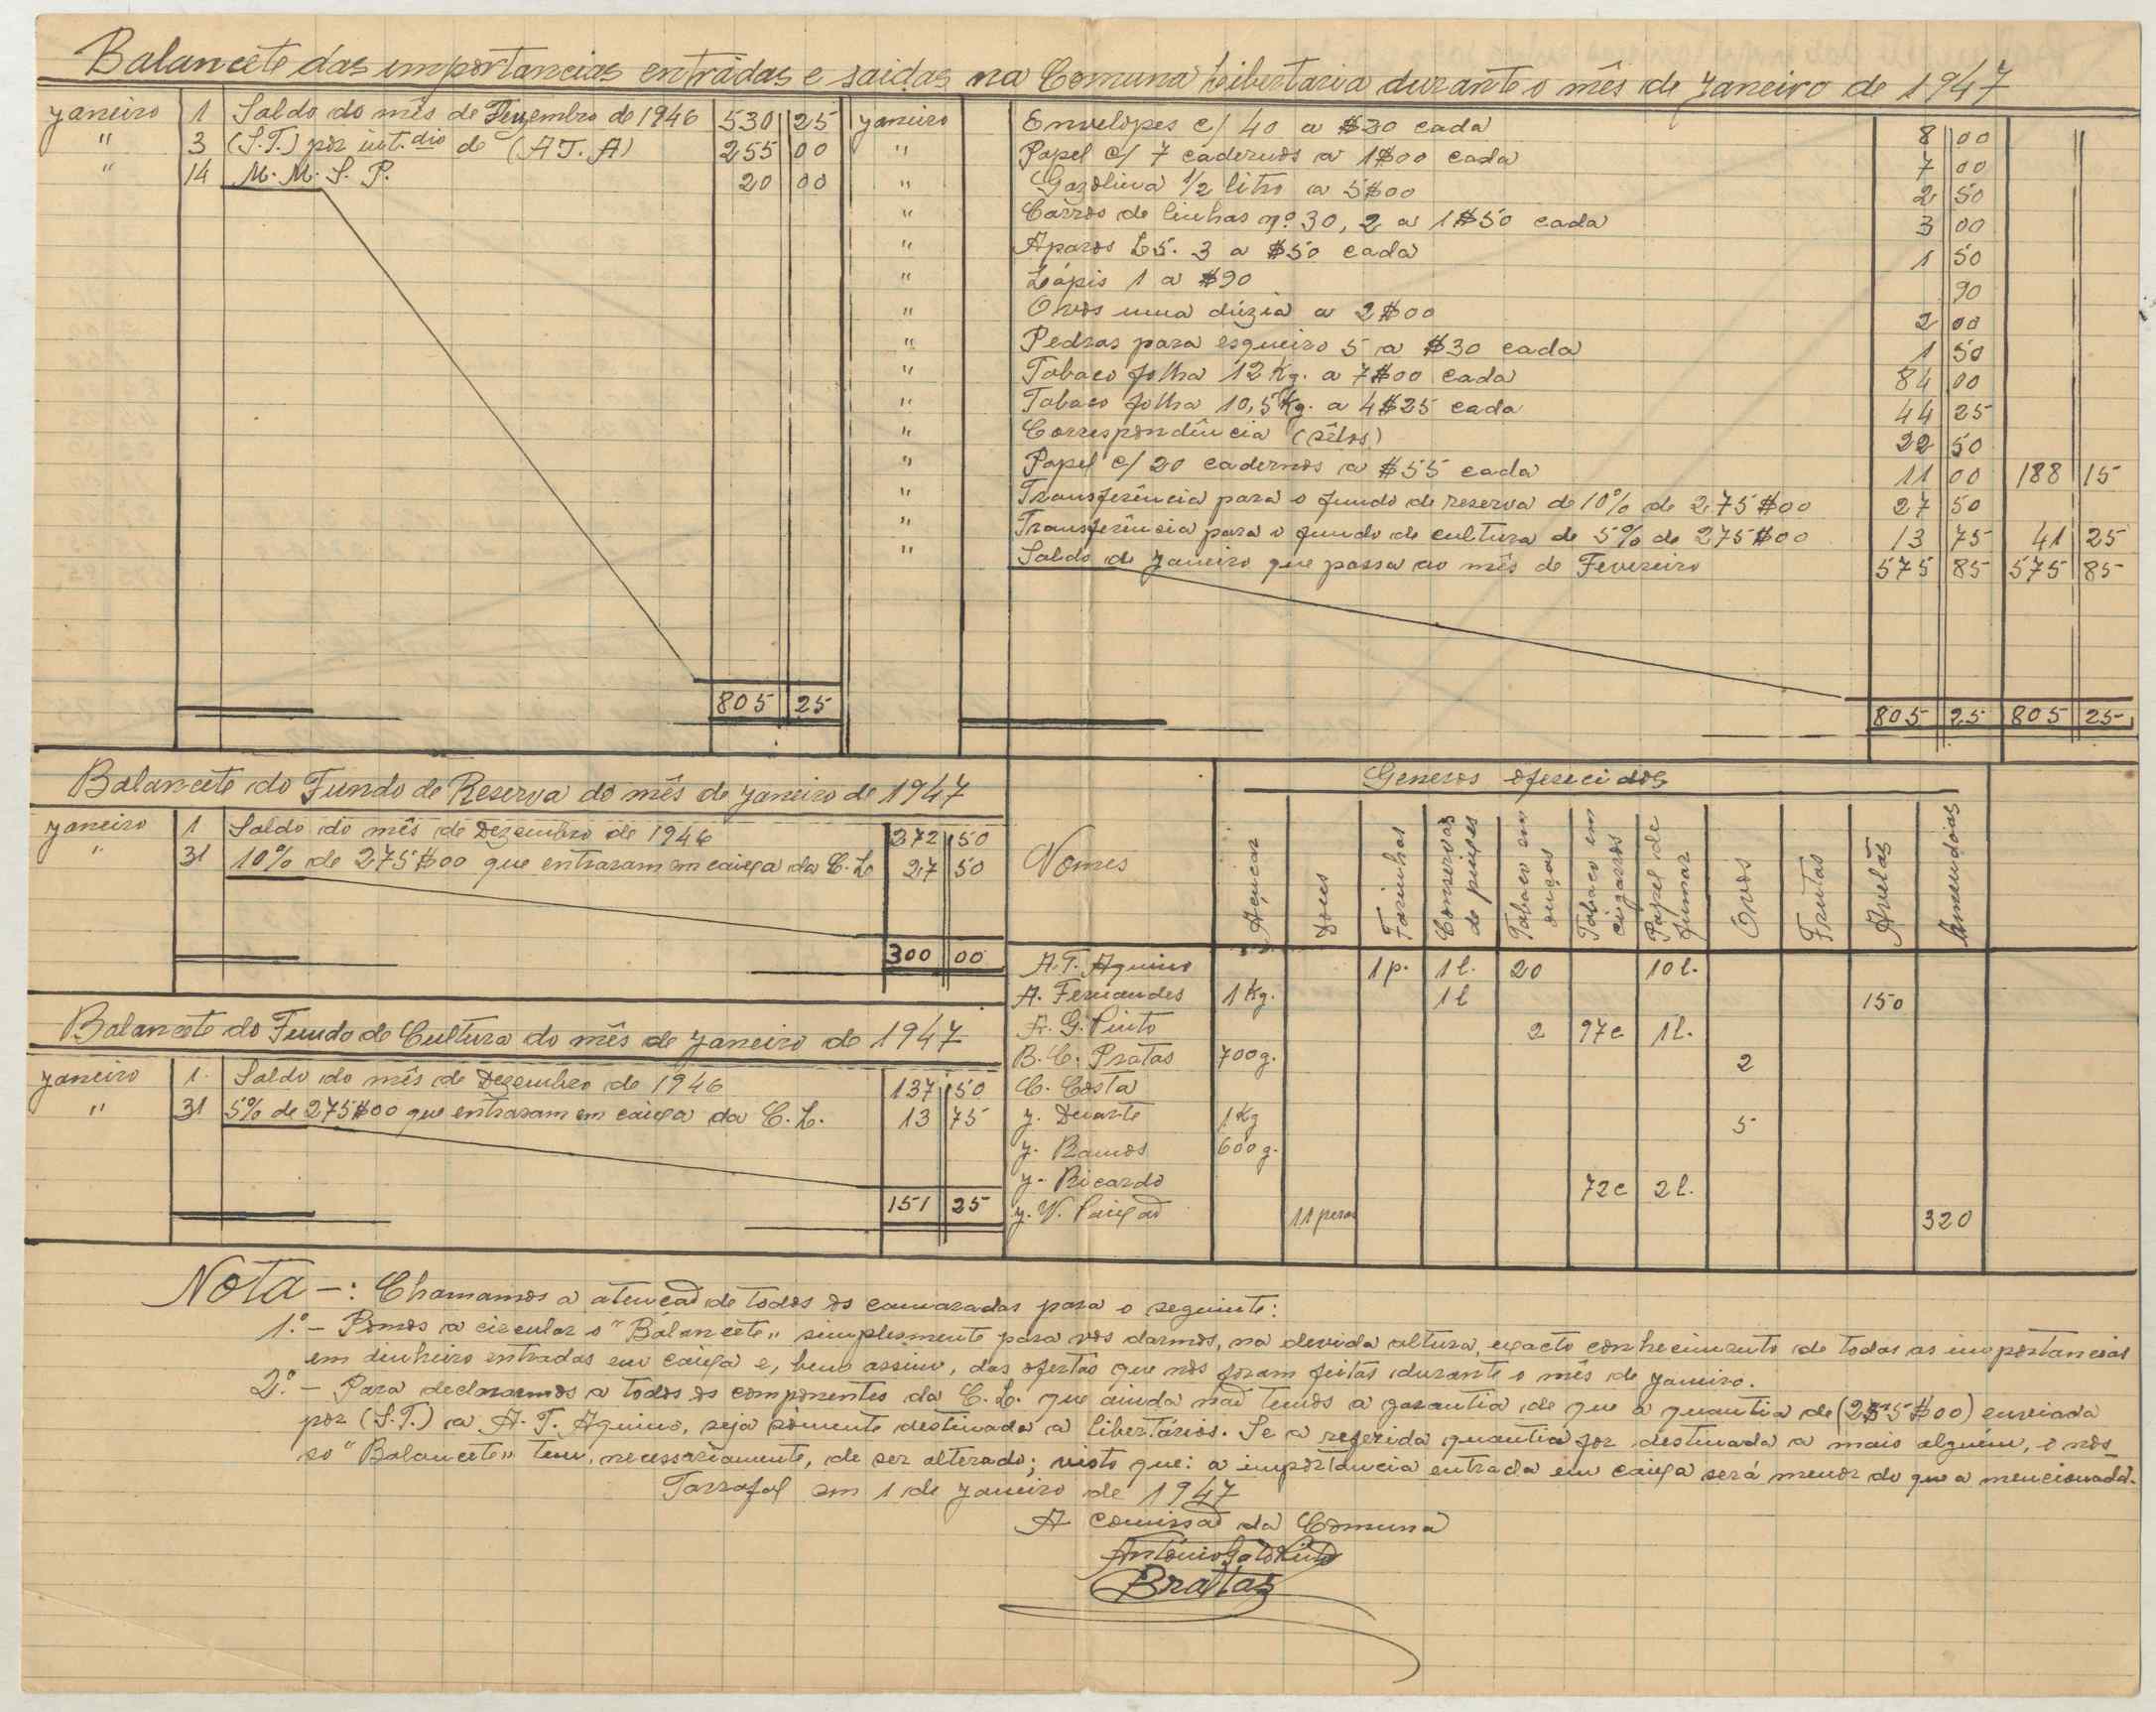 Balancête das importancias entrádas e saidas na Comuna Libertaria durante o mês de Janeiro de 1947
Janeiro 1 Saldo do mês de Dezembro de 1946 530 25
" 3 (S.T.) por int.dio de (A T. A) 255 00
" 14 M. M. S. P. 20 00
805 25
Janeiro Envelopes c/ 40 a $20 cada 8 00
" Papel c/ 7 cadernos a 1$00 cada 7 00
" Gazolina 1/2 litro a 5$00 2 50
" Carros de linhas nº 30, 2 a 1$50 cada 3 00
" Aparos L5. 3 a $50 cada 1 50
" Lápis 1 a $90 90
" Ovos uma dúzia a 2$00 2 00
" Pedras para esqueiro 5 a $30 cada 1 50
" Tabaco folha 12 Kg. a 7$00 cada 84 00
" Tabaco folha 10,5 Kg. a 4$25 cada 44 25
" Correspondência (sêlos) 22 50
" Papel c/ 20 cadernos a $55 cada 11 00 188 15
" Transferência para o fundo de reserva de 10% de 275$00 27 50
" Transferência para o fundo de cultura de 5% de 275$00 13 75 41 25
" Saldo de Janeiro que passa ao mês de Fevereiro 575 85 575 85
805 25 805 25
Balancête do Fundo de Reserva do mês de Janeiro de 1947
Janeiro 1 Saldo do mês de Dezembro de 1946 272 50
" 31 10% de 275$00 que entraram em caixa da C. L 27 50
300 00
Balancête do Fundo de Cultura do mês de Janeiro de 1947
Janeiro 1. Saldo do mês de Dezembro de 1946 137 50
" 31 5% de 275$00 que entraram em caixa da C. L. 13 75
151 25
Generos oferecidos
Nomes Açucar Doces Farinhas Conservas de peixes Tabaco em onças Tabaco em cigarros Papel de fumar Ovos Frutas Avelãs Amendoas
A. T. Aquino 1 p. 1 l. 20 10 l.
A. Fernandes 1 Kg. 1 l 150
A. G. Pinto 2 97 c 1 l.
B. C. Pratas 700 g. 2
C. Costa
J. Duarte 1 Kg 5
J. Ramos 600 g.
J. Ricardo 72 c 2 l.
J. V. Paixão 11 320
Nota -: Chamamos a atenção de todos os camaradas para o seguinte:
1.º - Pomos a circular o "Balancête" simplesmente para vos darmos, na devida altura, exacto conhecimento de todas as importancias
em dinheiro entradas em caixa e, bem assim, das ofertas que nos foram feitas durante o mês de Janeiro.
2.º - Para declararmos a todos os componentes da C. L. que ainda não temos a garantia de que a quantia de (255$00) enviada
por (S.T.) a A. T. Aquino, seja sòmente destinada a libertários. Se a referida quantia for destinada a mais alguém, o nos_
so "Balancête" tem, necessáriamente, de ser alterado; visto que: a importancia entrada em caixa será menor do que a mencionada.
Tarrafal em 1 de Janeiro de 1947
A comissão da Comuna
António Gato Pinto
Brattas